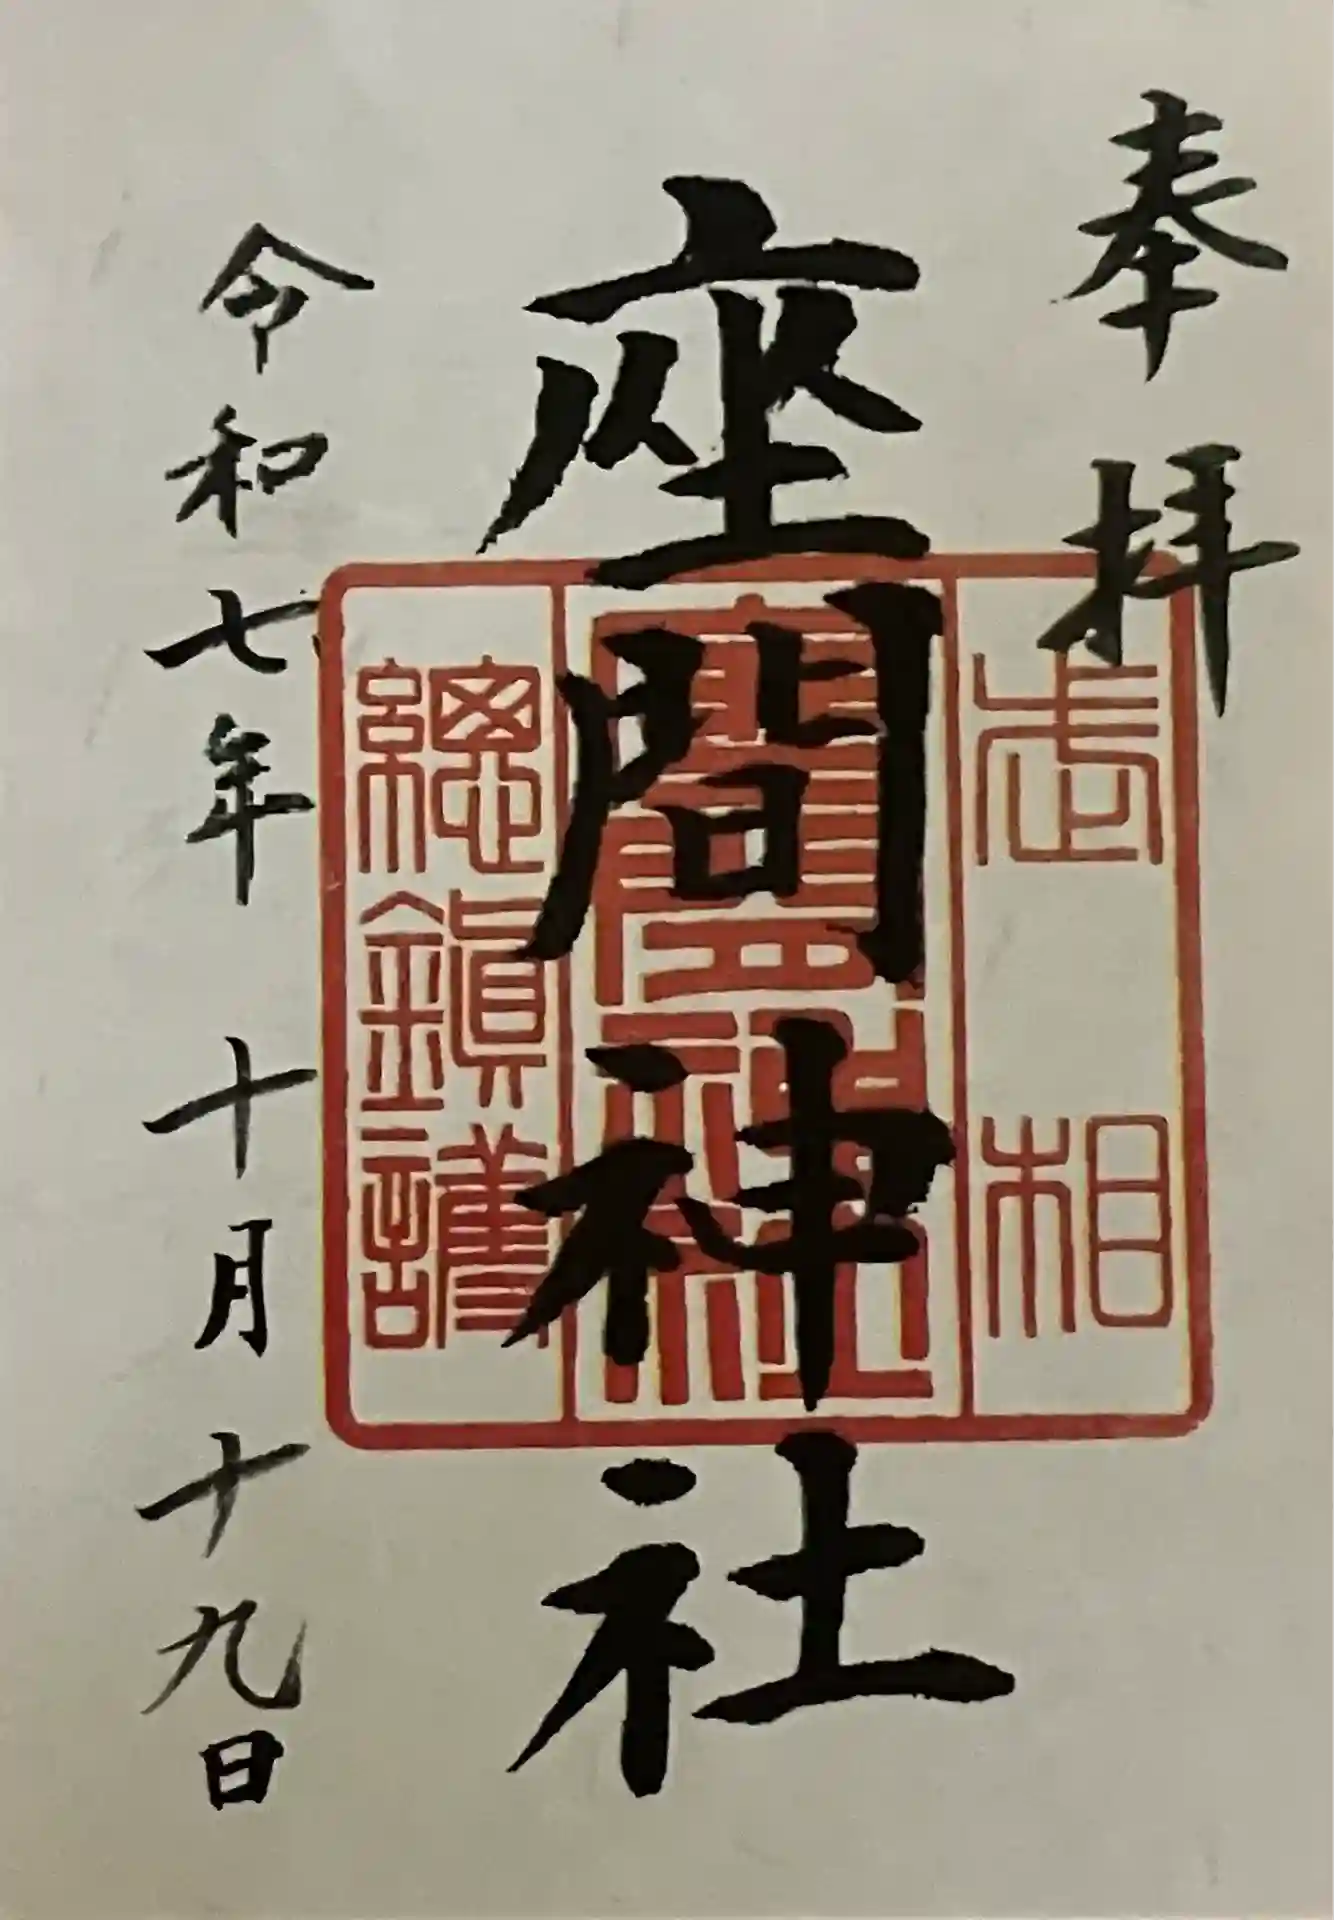 奉拝
武相
座間神社
座間神社
總鎮護
令和七年十月十九日